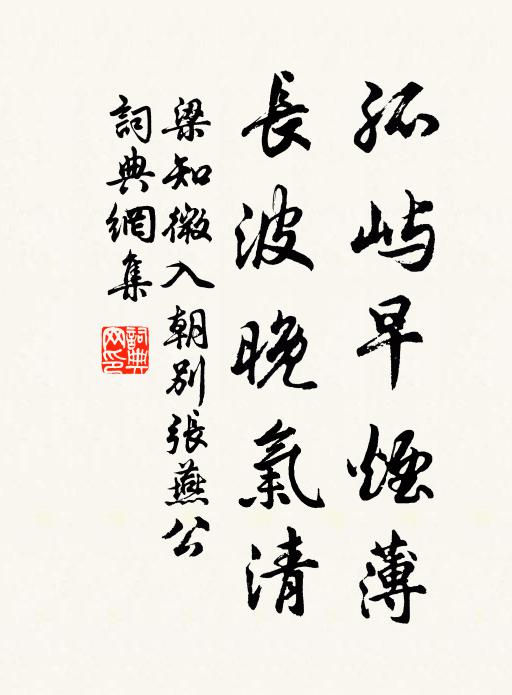 孤屿早煙薄
長波晚氣清
梁知微入朝別張燕公
詞典網集
詞典网印